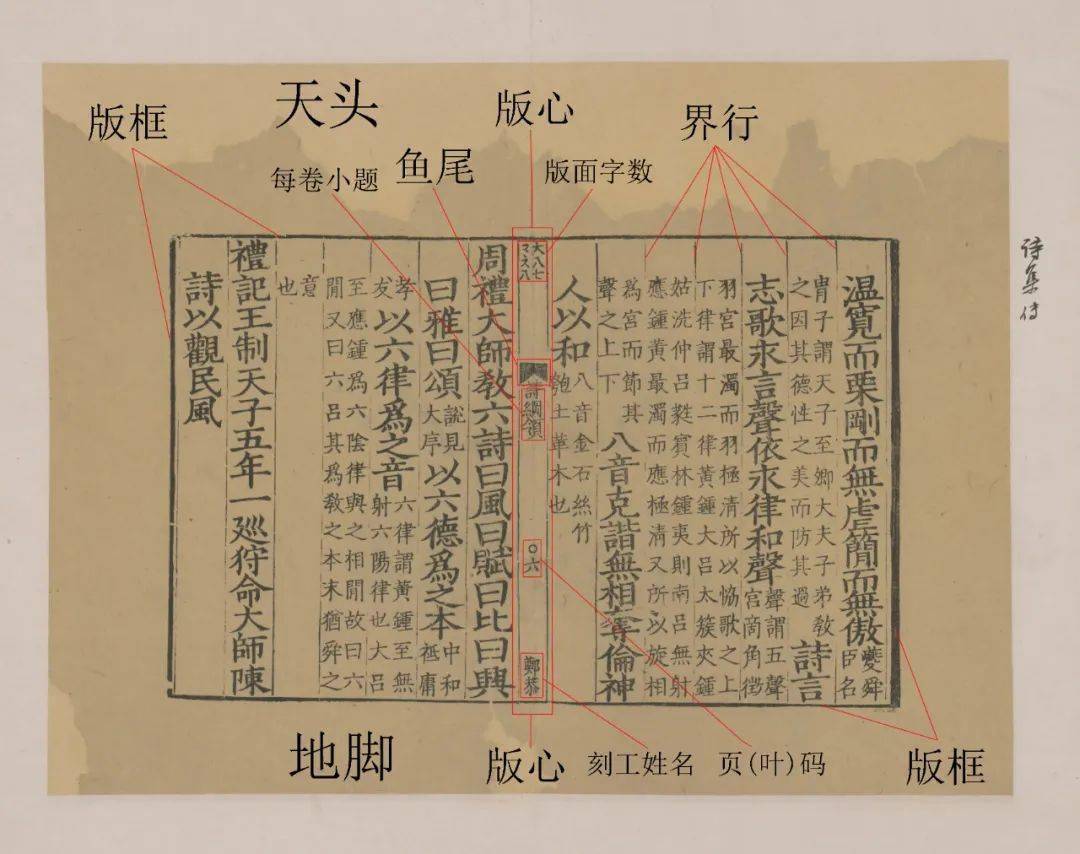 天头
版框
版心
界行
每卷小题
鱼尾
版面字数
温寬而栗剛而無虐簡而無傲夔舜
臣名
胄子謂天子至卿大夫子弟敎
之因其德性之美而防其過
詩言
志歌永言聲依永律和聲聲謂五聲
宫商角徵
羽宫最濁而羽極清所以恊歌之上
下律謂十二律黄鍾大吕太簇夾鍾
姑洗仲吕蕤賓林鍾夷則南吕無射
應鍾黄最濁而應極清又所以旋相
爲宫而節其
聲之上下
八音克諧無相奪倫神
人以和八音金石絲竹
匏土革木也
大八七
詩綱領
〇六
鄭恭
周禮大師敎六詩曰風曰賦曰比曰興
曰雅曰頌說見
大序
以六德爲之本中和
祗庸
孝
友
以六律爲之音六律謂黄鍾至無
射六陽律也大吕
至應鍾爲六陰律與之相間故曰六
間又曰六吕其爲敎之本末猶舜之
意
也
禮記王制天子五年一廵狩命大師陳
詩以觀民風
詩集传
地脚
版心
刻工姓名
页(叶)码
版框